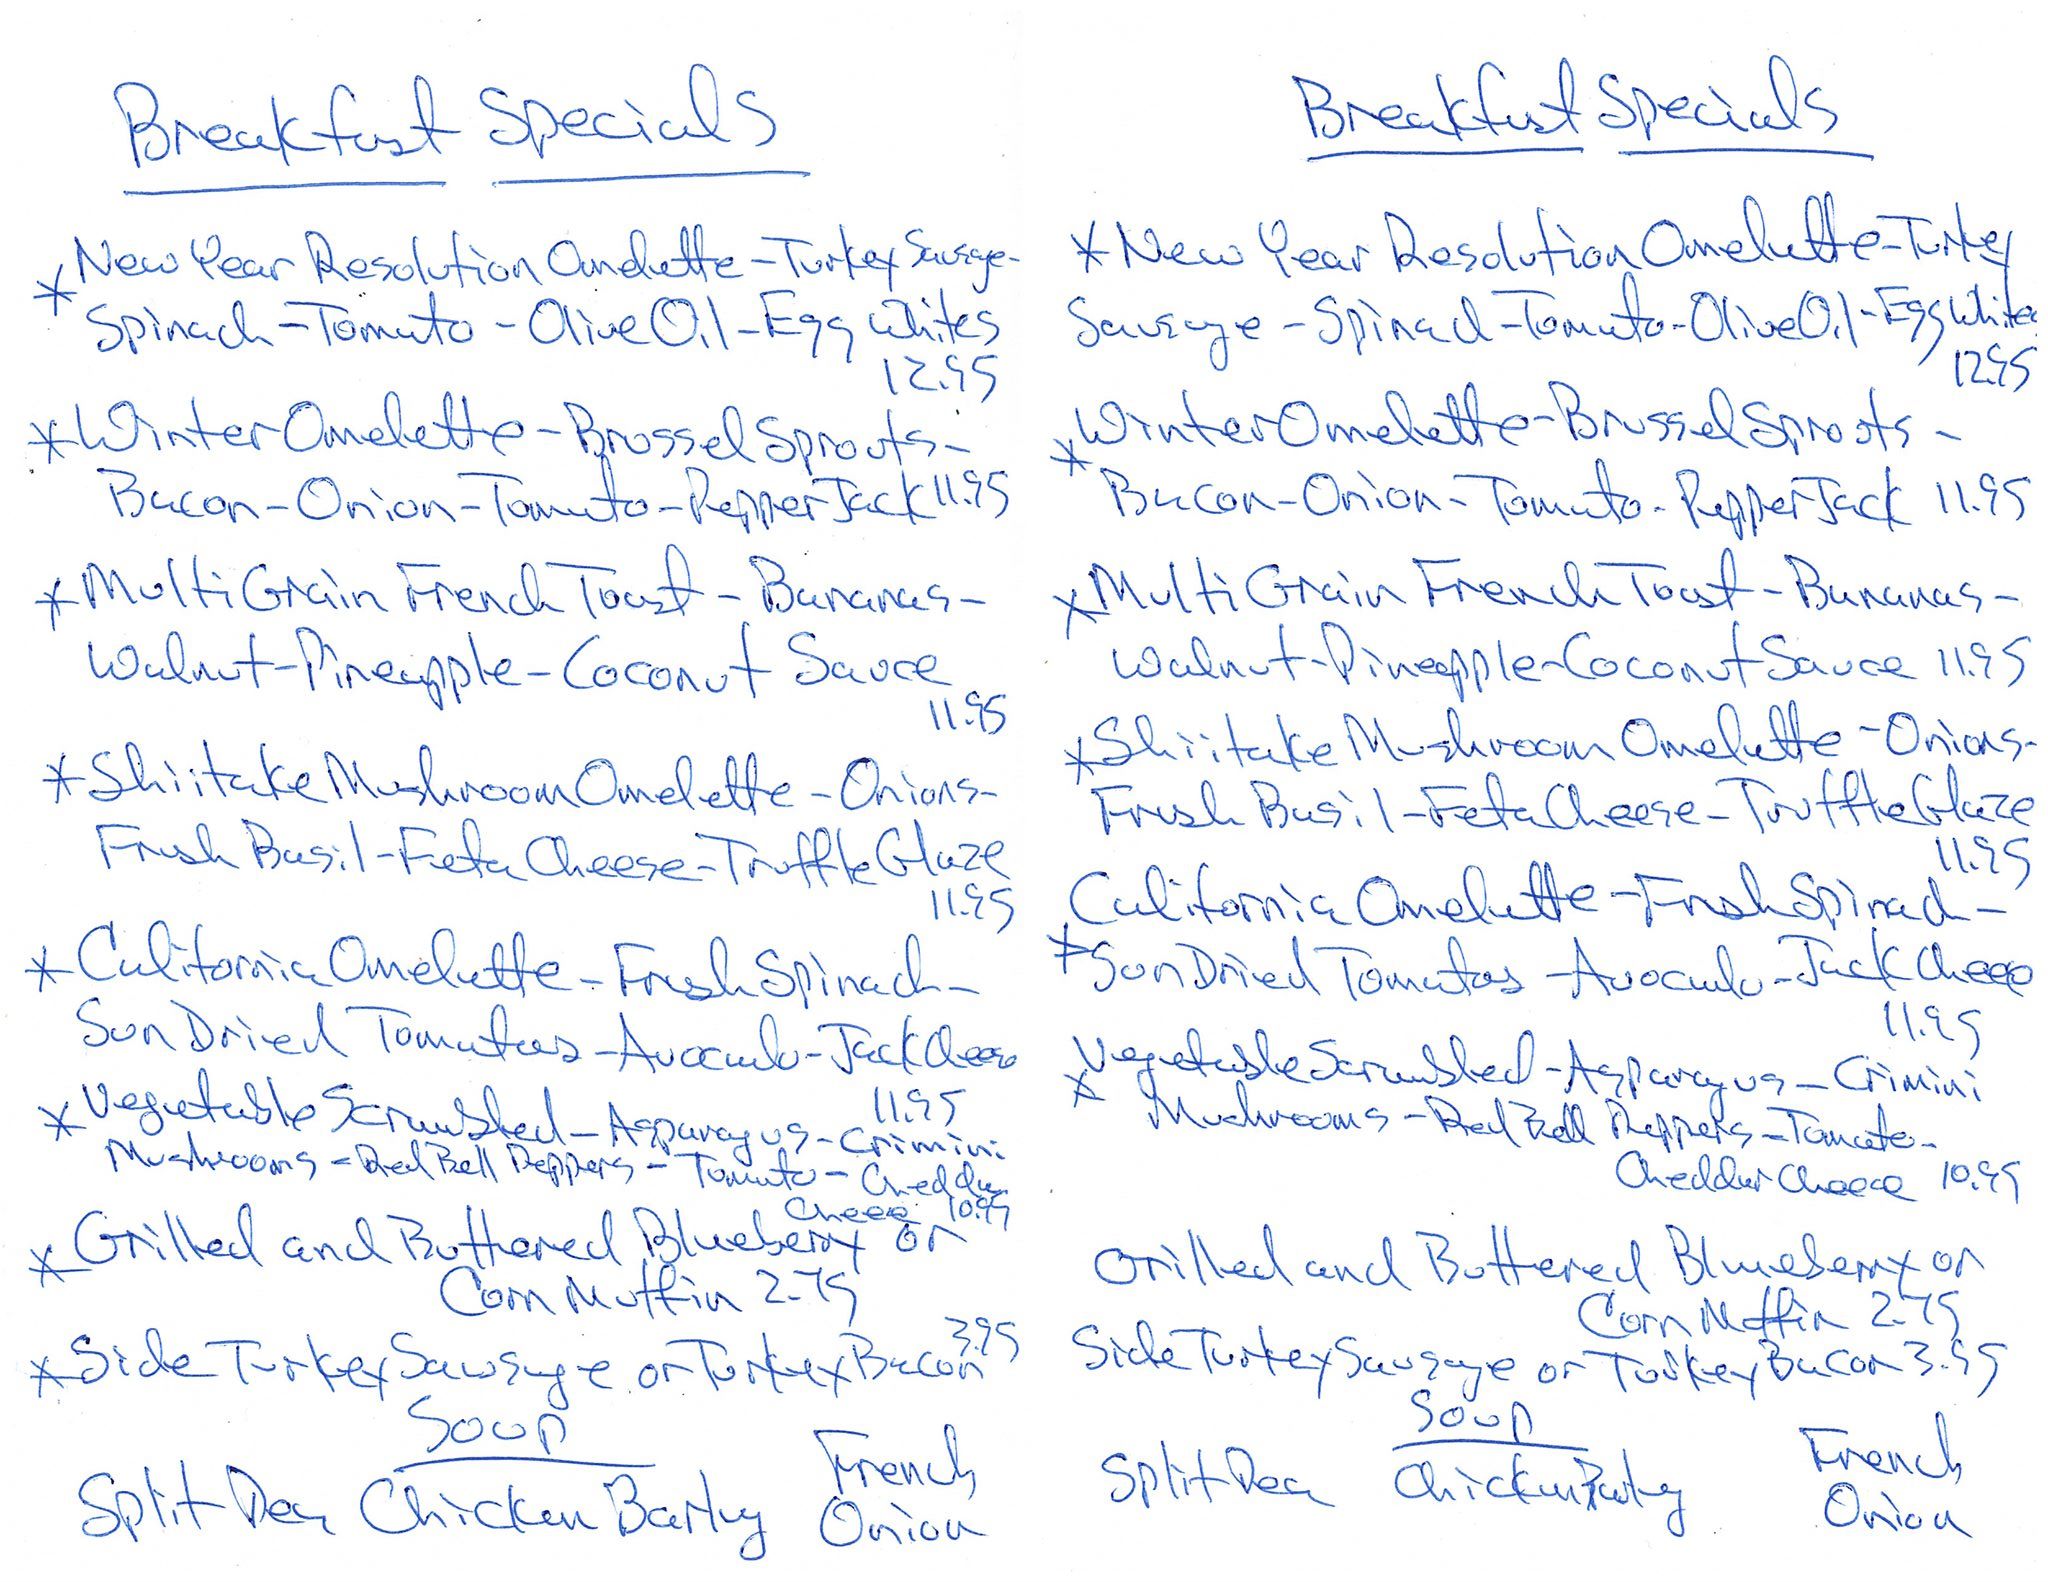 Breakfast Specials
* New Year Resolution Omelette - Turkey Sausage -
Spinach - Tomato - Olive Oil - Egg Whites
12.95
* Winter Omelette - Brussel Sprouts -
Bacon - Onion - Tomato - Pepper Jack 11.95
* Multi Grain French Toast - Bananas -
Walnut - Pineapple - Coconut Sauce
11.95
* Shiitake Mushroom Omelette - Onions -
Fresh Basil - Feta Cheese - Truffle Glaze
11.95
* California Omelette - Fresh Spinach -
Sun Dried Tomatoes - Avocado - Jack Cheese
11.95
* Vegetable Scrambled - Asparagus - Crimini
Mushrooms - Red Bell Peppers - Tomato - Cheddar
Cheese 10.95
* Grilled and Buttered Blueberry or
Corn Muffin 2.75
* Side Turkey Sausage or Turkey Bacon 3.95
Soup
Split Pea Chicken Barley French
Onion
Breakfast Specials
* New Year Resolution Omelette - Turkey
Sausage - Spinach - Tomato - Olive Oil - Egg Whites
12.95
* Winter Omelette - Brussel Sprouts -
Bacon - Onion - Tomato - Pepper Jack 11.95
* Multi Grain French Toast - Bananas -
Walnut - Pineapple - Coconut Sauce 11.95
* Shiitake Mushroom Omelette - Onions -
Fresh Basil - Feta Cheese - Truffle Glaze
11.95
California Omelette - Fresh Spinach -
* Sun Dried Tomatoes - Avocado - Jack Cheese
11.95
* Vegetable Scrambled - Asparagus - Crimini
Mushrooms - Red Bell Peppers - Tomato -
Cheddar Cheese 10.95
Grilled and Buttered Blueberry or
Corn Muffin 2.75
Side Turkey Sausage or Turkey Bacon 3.95
Soup
Split Pea Chicken Barley French
Onion